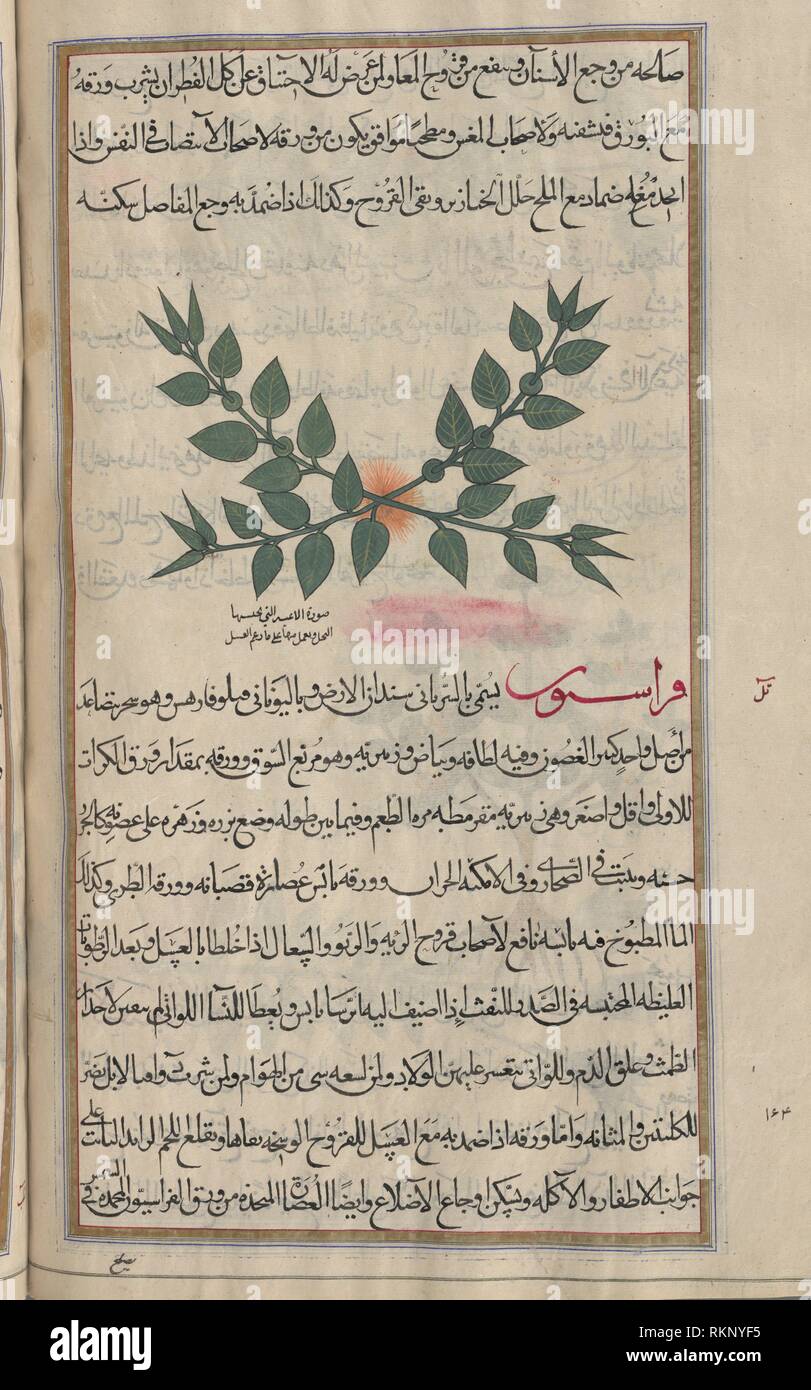 صالحه من وجع الأسنان وينفع من قروح المعا ولمن عرض له الاختناق عن اكل الفطر ان يشرب ورقه
مع البورق فيشفيه ولاصحاب المغس ومطحما موافق يكون من ورقه لاصحاب الانتصاب في النفس واذا
اتخذ منه ضماد مع الملح حلل الخنازير ونقى القروح وكذلك اذا ضمد به وجع المفاصل سكنه
صورة التي يحبسها
النحل ويعمل منها على ما زعم العسل
فراسيون يسمى بالسرياني سندان الارض وباليوناني فيلوفارهس وهو شجر يتصاعد
من أصل واحد كثير الغصون وفيه لطافه وبياض وزئبريه وهو مربع السوق وورقه بمقدار ورق الكراث
للاولى واقل واصغر وهي زئبريه مقرمطه مره الطعم وفيما بين طوله وضع بزره وزهره على غصونه
خشنه وينبت في الصحارى وفي الامكنه الخراب وورقه يابس عصارة قصبانه وورقه الطرى وكذلك
الما المطبوخ فيه يابسه نافع لأصحاب قروح الريه والربو والسعال اذا خلطا بالعسل وبعد الرطوبات
الغليظه المحتبسه في الصدر وللنفث إذا اضيف اليه ايرسا يابس ويعطا للنسآ اللواتى لاحدار
الطمث وعلق الدم وللواتى يتعسر عليهن الولاد ولمن لسعه شي من الهوام ولمن شرب واما الابل يضر
للكليتين والمثانه وأما ورقه اذا ضمد به مع العسل للقروح الوسخه نقاها ويقلع اللحم الزايد النابت على
جوانب الاظفار والآكله ويسكن اوجاع الأضلاع وايضا العصارة المتخذه من ورق الفراسيون المجمده في الشمس
يصلح
١٦٤
alamy
Image ID: RKNYF5
www.alamy.com